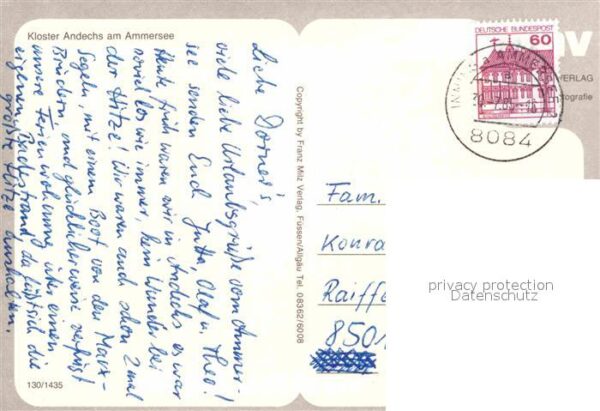 Kloster Andechs am Ammersee
Liebe Dorner's,
viele liebe Urlaubsgrüße vom Ammer-
see senden Euch Jutta, Olaf u. Theo!
Heute früh waren wir in Andechs es war
soviel los wie immer, kein Wunder bei
der Hitze! Wir waren auch schon 2 mal
segeln, mit einem Boot von den Marx-
Brüdern, und glücklicherweise verfügt
unsere Ferienwohnung über einen
eigenen Badestrand, da läßt sich die
größte Hitze aushalten.
130/1435
Copyright by Franz Milz Verlag, Füssen/Allgäu Tel. 08362/6008
DEUTSCHE BUNDESPOST
60
8084
VERLAG
Fam.
Konra
Raiffe
850
privacy protection
Datenschutz